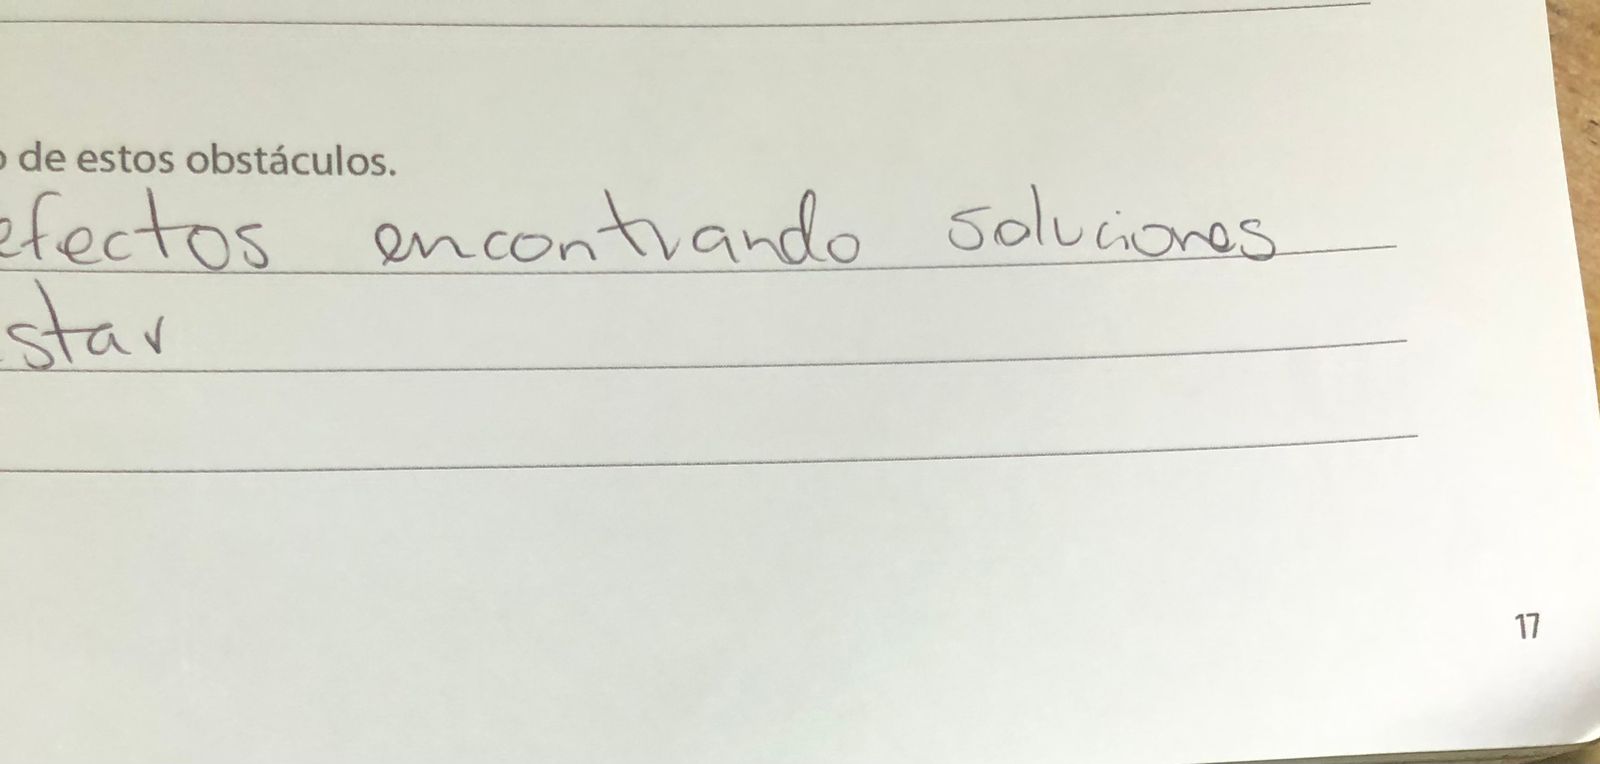 de estos obstáculos.
efectos encontrando soluciones
star
17